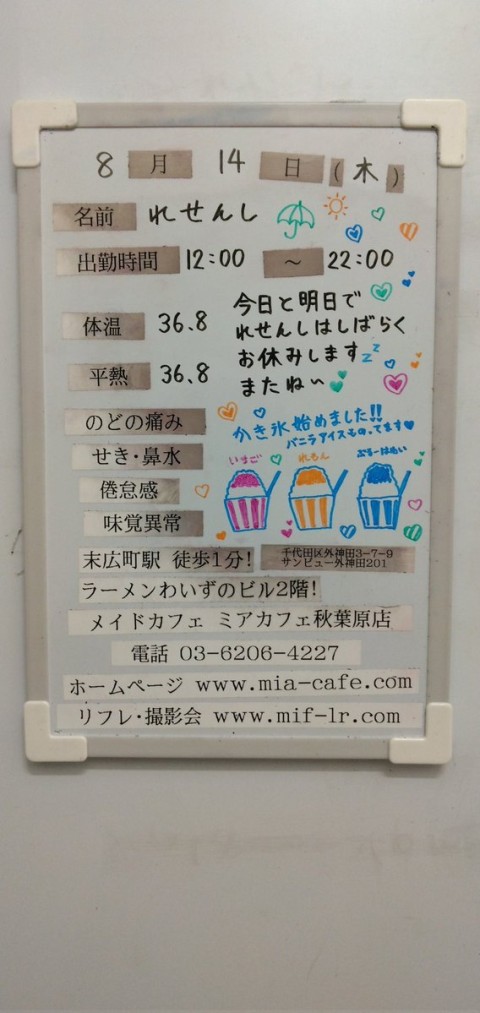 8月14日(木)
名前 れせんし
出勤時間 12:00 ～ 22:00
体温 36.8
平熱 36.8
今日と明日で
れせんしはしばらく
お休みします zzz
またね〜
のどの痛み
せき・鼻水
倦怠感
味覚異常
かき氷始めました!!
バニラアイスものってます
いちご
れもん
ぶるーはわい
末広町駅 徒歩1分!
千代田区外神田3-7-9
サンビュー外神田201
ラーメンわいずのビル2階!
メイドカフェ ミアカフェ秋葉原店
電話 03-6206-4227
ホームページ www.mia-cafe.com
リフレ・撮影会 www.mif-lr.com